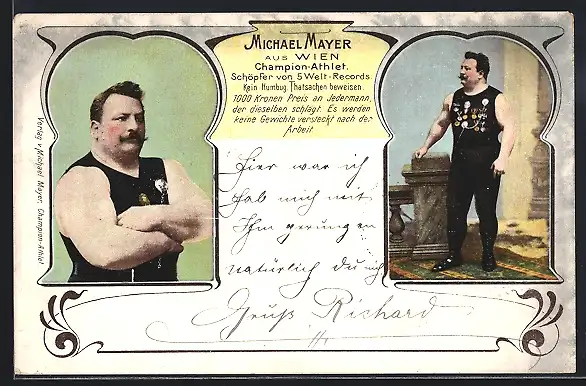 MICHAEL MAYER
AUS WIEN
Champion-Athlet.
Schöpfer von 5 Welt-Records.
Kein Humbug. Thatsachen beweisen.
1000 Kronen Preis an Jedermann,
der dieselben schlägt. Es werden
keine Gewichte versteckt nach der
Arbeit
Verlag v. Michael Mayer, Champion-Athlet
Hier war ich
hab mich mit
Ihm gerungen
natürlich du nich
Gruß Richard